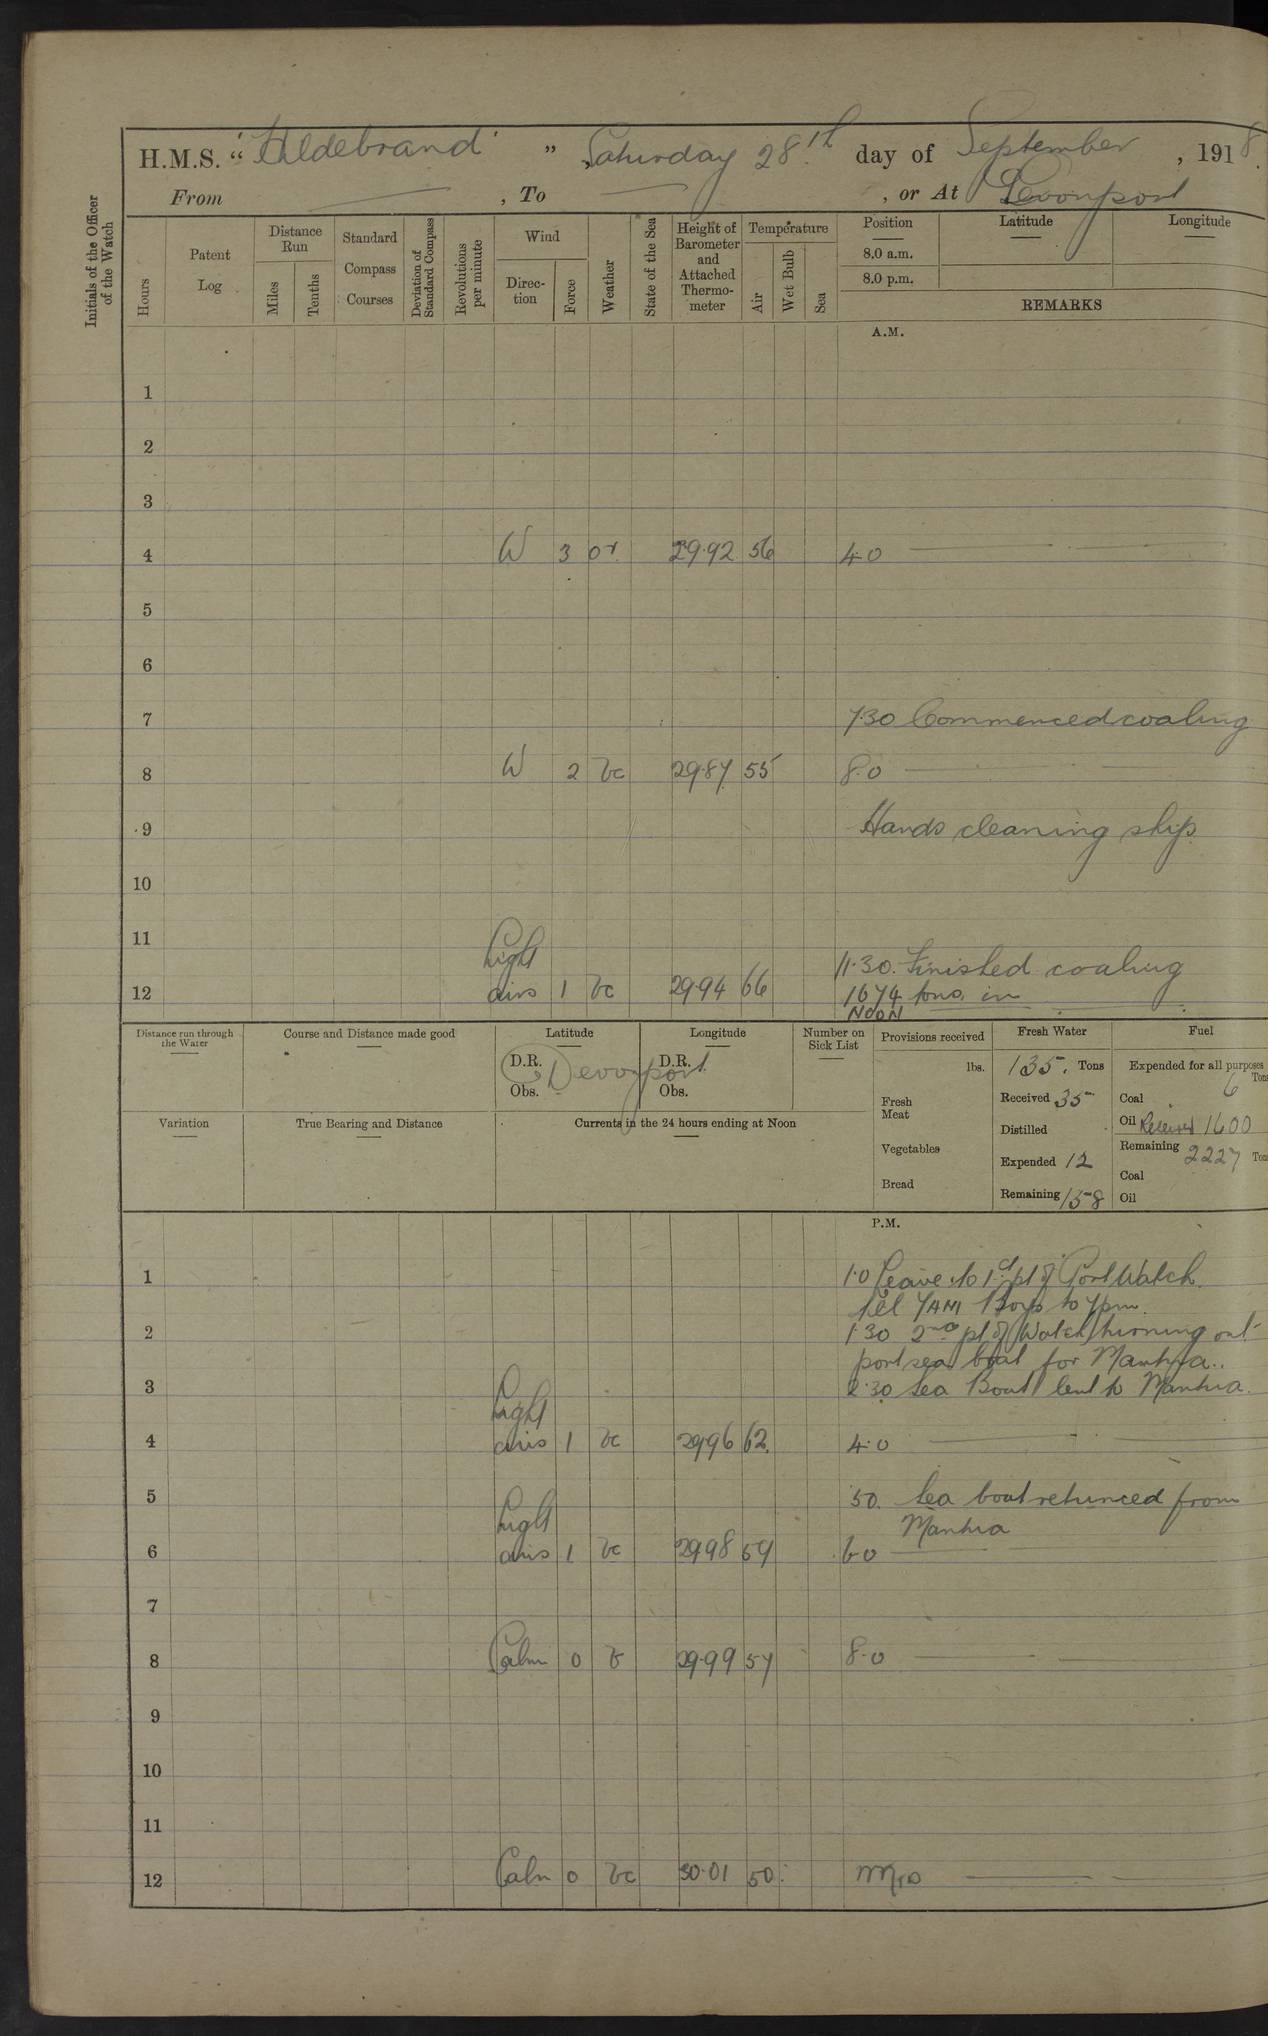 H.M.S. "Hildebrand" Saturday 28th day of September, 1918.
From , To , or At Devonport
Initials of the Officer of the Watch
Hours
Patent Log
Distance Run
Miles
Tenths
Standard Compass Courses
Deviation of Standard Compass
Revolutions per minute
Wind
Direction
Force
Weather
State of the Sea
Height of Barometer and Attached Thermometer
Temperature
Air
Wet Bulb
Sea
Position Latitude Longitude
8.0 a.m.
8.0 p.m.
REMARKS
A.M.
1
2
3
4 W 3 or 29.92 56 4.0
5
6
7 7.30 Commenced coaling
8 W 2 bc 29.87 55 8.0
9 Hands cleaning ship
10
11
Light 11.30. Finished coaling
12 airs 1 bc 29.94 66 1674 tons in
NOON
Distance run through the Water
Course and Distance made good
Latitude
Longitude
D.R. D.R.
Devonport
Obs. Obs.
Number on Sick List
Variation
True Bearing and Distance
Currents in the 24 hours ending at Noon
Provisions received
lbs.
Fresh Meat
Vegetables
Bread
Fresh Water
135. Tons
Received 35
Distilled
Expended 12
Remaining 158
Fuel
Expended for all purposes
Tons
Coal 6
Oil Received 1600
Remaining 2227 Tons
Coal
Oil
P.M.
1 1.0 Leave to 1st pt of Port Watch
till 7AM Boys to 7pm.
2 1.30 2nd pt of Watch turning out
port sea boat for Mantua..
3 2.30 Sea Boat lent to Mantua.
Light
4 airs 1 bc 29.96 62. 4.0
5 5.0. Sea boat returned from
Light Mantua
6 airs 1 bc 29.98 59 6.0
7
8 Calm 0 b 29.99 57 8.0
9
10
11
12 Calm 0 bc 30.01 50 Mid